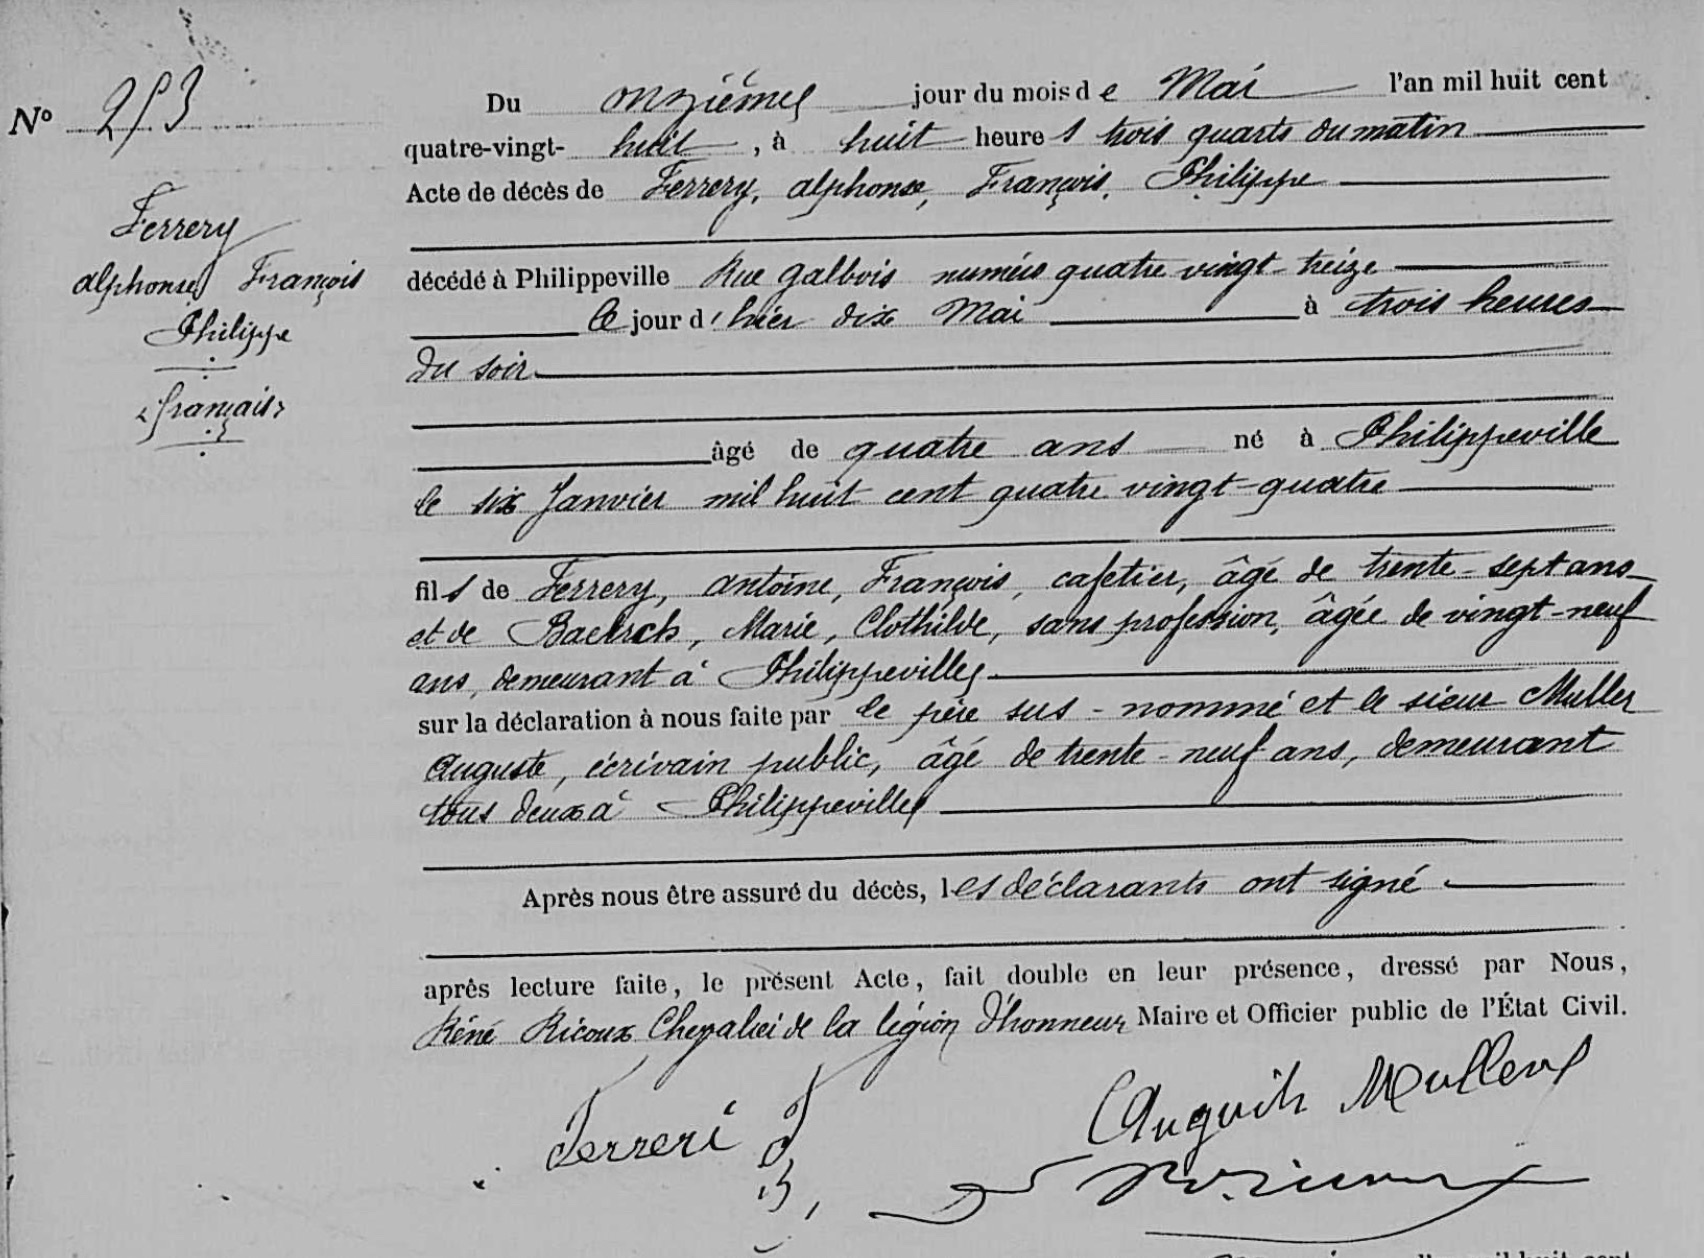 Nº 253
Ferrery
alphonse François
Philippe
"français"
Du onzième jour du mois de Mai l'an mil huit cent
quatre-vingt-huit, à huit heures trois quarts du matin
Acte de décès de Ferrery, alphonse, François, Philippe
décédé à Philippeville Rue galbois numéro quatre vingt-treize
le jour d'hier dix Mai à trois heures
du soir
âgé de quatre ans né à Philippeville
le six Janvier mil huit cent quatre vingt-quatre
fils de Ferrery, antoine, François, cafetier, âgé de trente-sept ans
et de Baehrch, Marie, Clothilde, sans profession, âgée de vingt-neuf
ans, demeurant à Philippeville
sur la déclaration à nous faite par le père sus-nommé et le sieur Muller
Auguste, écrivain public, âgé de trente-neuf ans, demeurant
tous deux à Philippeville
Après nous être assuré du décès, les déclarants ont signé
après lecture faite, le présent Acte, fait double en leur présence, dressé par Nous,
Réné Ricoux Chevalier de la légion d'honneur Maire et Officier public de l'État Civil.
Ferreri